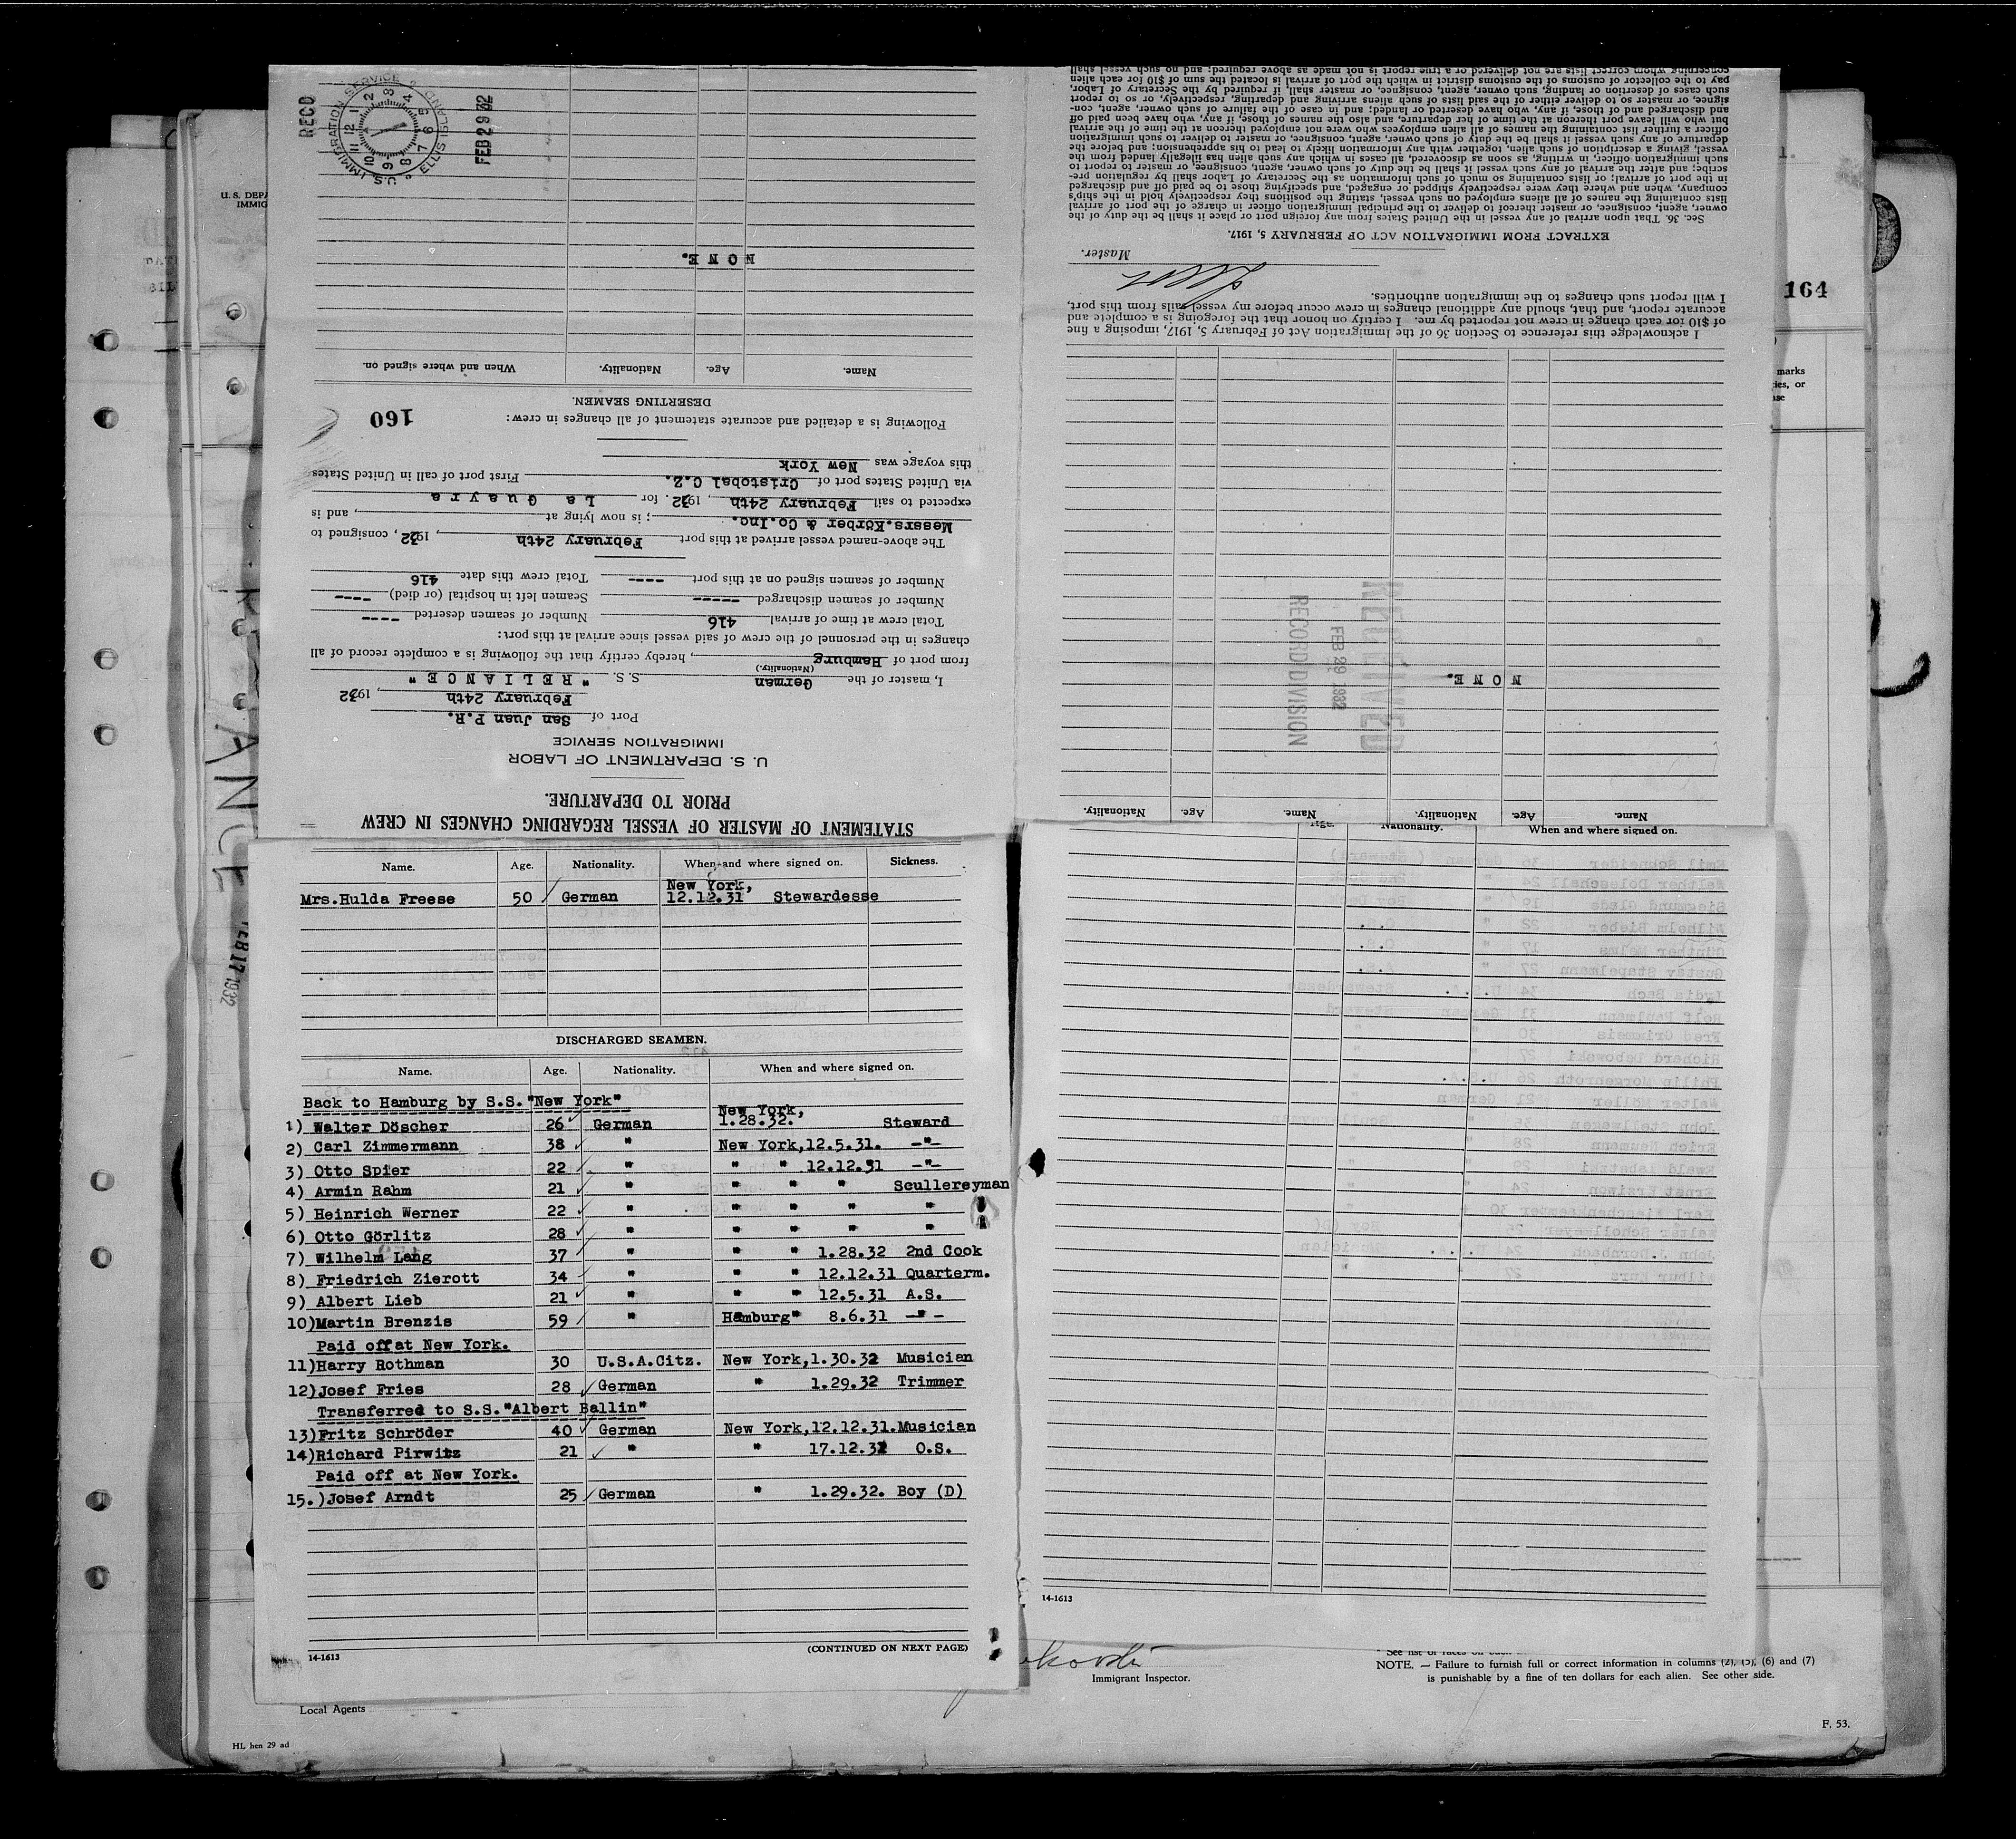 STATEMENT OF MASTER OF VESSEL REGARDING CHANGES IN CREW
PRIOR TO DEPARTURE.
U. S. DEPARTMENT OF LABOR
IMMIGRATION SERVICE
Port of San Juan P.R.
February 24th, 1932
I, master of the German S.S. "RELIANCE"
(Nationality.)
from port of Hamburg, hereby certify that the following is a complete record of all
changes in the personnel of the crew of said vessel since arrival at this port:
Total crew at time of arrival 416 Number of seamen deserted ----
Number of seamen discharged ----- Seamen left in hospital (or died) ----
Number of seamen signed on at this port ---- Total crew this date 416
The above-named vessel arrived at this port February 24th, 1932, consigned to
Messrs.Körber & Co.Inc. ; is now lying at , and is
expected to sail February 24th, 1932. for La Guayra
via United States port of Cristobal C.Z. First port of call in United States
this voyage was New York
Following is a detailed and accurate statement of all changes in crew:
160
DESERTING SEAMEN.
Name. Age. Nationality. When and where signed on.
NONE.
REC'D
U.S. IMMIGRATION SERVICE ELLIS ISLAND
FEB 29 32
Name. Age. Nationality. Name. Age. Nationality.
NONE.
RECEIVED
FEB 29 1932
RECORD DIVISION
I acknowledge this reference to Section 36 of the Immigration Act of February 5, 1917, imposing a fine
of $10 for each change in crew not reported by me. I certify on honor that the foregoing is a complete and
accurate report, and that, should any additional changes in crew occur before my vessel sails from this port,
I will report such changes to the immigration authorities.
Master.
EXTRACT FROM IMMIGRATION ACT OF FEBRUARY 5, 1917.
Sec. 36. That upon arrival of any vessel in the United States from any foreign port or place it shall be the duty of the
owner, agent, consignee, or master thereof to deliver to the principal immigration officer in charge of the port of arrival
lists containing the names of all aliens employed on such vessel, stating the positions they respectively hold in the ship's
company, when and where they were respectively shipped or engaged, and specifying those to be paid off and discharged
in the port of arrival; or lists containing so much of such information as the Secretary of Labor shall by regulation pre-
scribe; and after the arrival of any such vessel it shall be the duty of such owner, agent, consignee, or master to report to
such immigration officer, in writing, as soon as discovered, all cases in which any such alien has illegally landed from the
vessel, giving a description of such alien, together with any information likely to lead to his apprehension; and before the
departure of any such vessel it shall be the duty of such owner, agent, consignee, or master to deliver to such immigration
officer a further list containing the names of all alien employees who were not employed thereon at the time of the arrival
but who will leave port thereon at the time of her departure, and also the names of those, if any, who have been paid off
and discharged and of those, if any, who have deserted or landed; and in case of the failure of such owner, agent, con-
signee, or master so to deliver either of the said lists of such aliens arriving and departing, respectively, or so to report
such cases of desertion or landing, such owner, agent, consignee, or master shall, if required by the Secretary of Labor,
pay to the collector of customs of the customs district in which the port of arrival is located the sum of $10 for each alien
concerning whom correct lists are not delivered or a true report is not made as above required; and no such vessel shall
U. S. DEPA
IMMIG
164
marks
ies, or
FEB 17 1932
Name. Age. Nationality. When and where signed on. Sickness.
New York,
Mrs.Hulda Freese 50 German 12.12.31 Stewardesse
DISCHARGED SEAMEN.
Name. Age. Nationality. When and where signed on.
Back to Hamburg by S.S."New York"
New York,
1) Walter Döscher 26 German 1.28.32. Steward
2) Carl Zimmermann 38 " New York,12.5.31. -"-
3) Otto Spier 22 " " " 12.12.31 -"-
4) Armin Rahm 21 " " " " Scullereyman
5) Heinrich Werner 22 " " " " "
6) Otto Görlitz 28 " " " " "
7) Wilhelm Lang 37 " " " 1.28.32 2nd Cook
8) Friedrich Zierott 34 " " " 12.12.31 Quarterm.
9) Albert Lieb 21 " " " 12.5.31 A.S.
10)Martin Brenzis 59 " Hamburg" 8.6.31 -"-
Paid off at New York.
11)Harry Rothman 30 U.S.A.Citz. New York,1.30.32 Musician
12)Josef Fries 28 German " 1.29.32 Trimmer
Transferred to S.S."Albert Ballin"
13)Fritz Schröder 40 German New York,12.12.31.Musician
14)Richard Pirwitz 21 " " 17.12.31 O.S.
Paid off at New York.
15.)Josef Arndt 25 German " 1.29.32. Boy (D)
14-1613
(CONTINUED ON NEXT PAGE)
Age. Nationality. When and where signed on.
14-1613
Immigrant Inspector.
* See list of races on back
NOTE. — Failure to furnish full or correct information in columns (2), (5), (6) and (7)
is punishable by a fine of ten dollars for each alien. See other side.
Local Agents
F. 53.
HL hen 29 ad